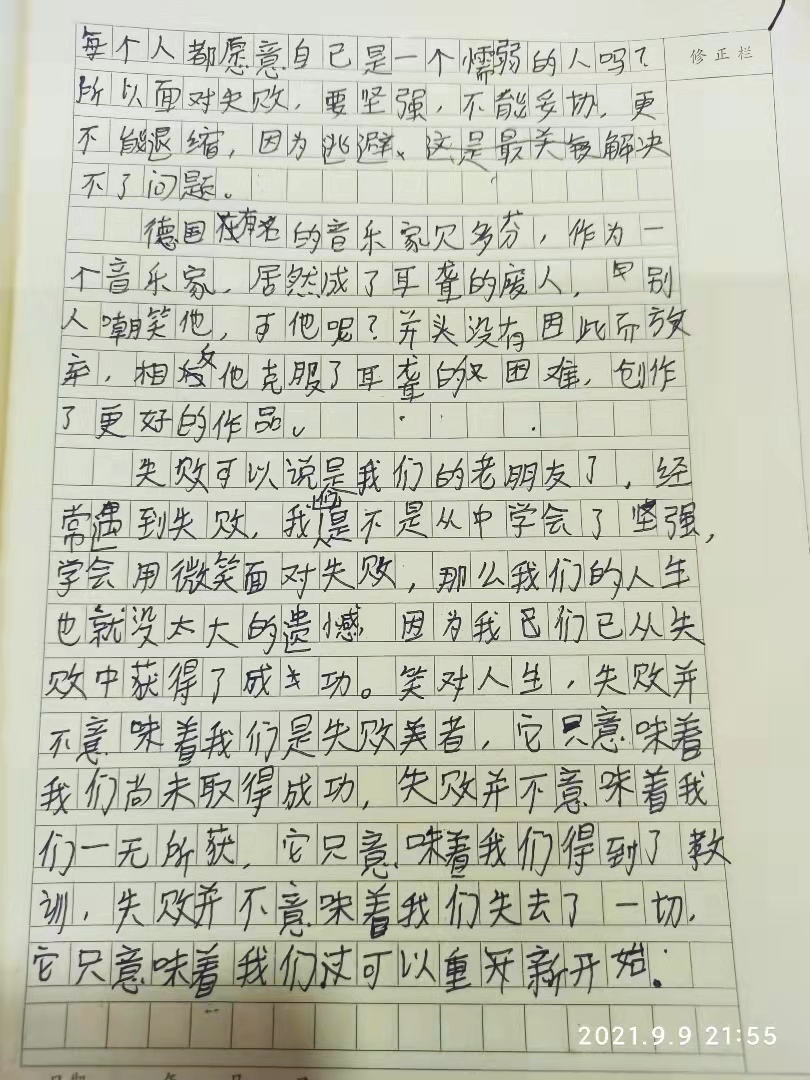 每个人都愿意自己是一个懦弱的人吗?
修正栏
所以面对失败,要坚强,不能妥协,更
不能退缩,因为逃避、这是最关解决
不了问题。
德国有名的音乐家贝多芬,作为一
个音乐家,居然成了耳聋的废人,别
人嘲笑他,可他呢?并没有因此而放
弃,相反他克服了耳聋的困难,创作
了更好的作品。
失败可以说是我们的老朋友了,经
常遇到失败,我们是不是从中学会了坚强,
学会用微笑面对失败,那么我们的人生
也就没太大的遗憾 因为我们已从失
败中获得了成功。笑对人生,失败并
不意味着我们是失败者,它只意味着
我们尚未取得成功,失败并不意味着我
们一无所获,它只意味着我们得到了教
训,失败并不意味着我们失去了一切,
它只意味着我们可以重新开始.
2021.9.9 21:55